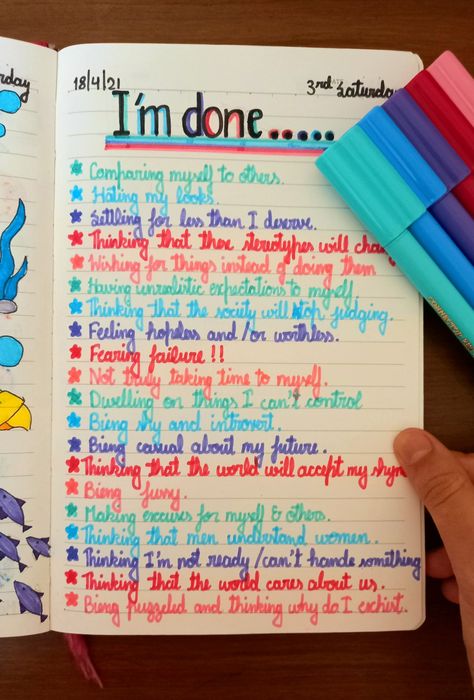 rday
18/4/21
3rd Saturday
I'm done......
Comparing myself to others.
Hating my looks.
Settling for less than I deserve.
Thinking that these sterotypes will chan
Wishing for things instead of doing them
Having unrealistic expectations to myself
Thinking that the society will stop judging.
Feeling hopeless and/or worthless.
Fearing failure !!
Not truly taking time to myself.
Dwelling on things I can't control
Bieng shy and introvert.
Bieng casual about my future.
Thinking that the world will accept my shyn
Bieng funy.
Making excuses for myself & others.
Thinking that men understand women.
Thinking I'm not ready/can't hande something
Thinking that the world cares about us.
Bieng puzzeled and thinking why do I exchist.